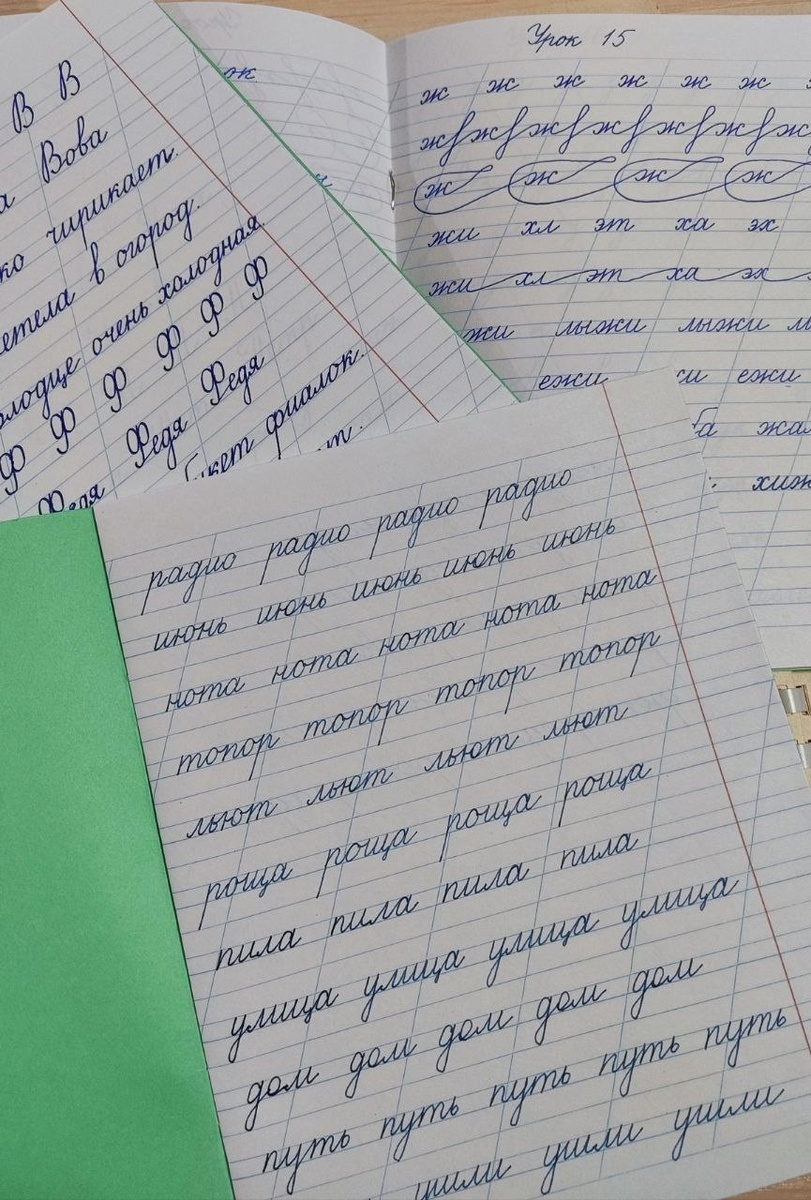 В В
Вова
чирикает.
в огород.
очень холодная
Ф Ф Ф Ф Ф Ф
Федя Федя Федя
фиалок.
Урок 15
ж ж ж ж ж ж
ж ж ж ж ж ж
ж ж ж ж
жи хл эт ха эх
жи хл эт ха эх
жи лыжи лыжи
ежи ежи
радио радио радио радио
июнь июнь июнь июнь июнь
нота нота нота нота нота
топор топор топор топор
льют льют льют льют
роща роща роща роща
пила пила пила пила
улица улица улица улица
дом дом дом дом дом
путь путь путь путь путь
ушли ушли ушли